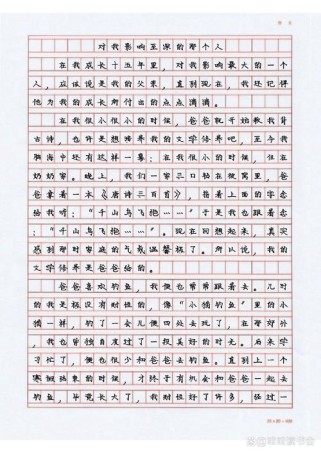 对我影响至深的那个人
在我成长十五年里，对我影响最大的一个
人，应该说是我的父亲，直到现在，我还记得
他为我的成长所付出的点点滴滴。
在我很小很小的时候，爸爸就开始教我背
古诗，也许是想培养我的文学修养吧，至今我
脑海中还有这样一幕：在我很小的时候，住在
奶奶家。晚上，我们一家三口躺在被窝里，爸
爸拿着一本《唐诗三百首》，指着上面的字念
给我听：“千山鸟飞绝……”于是我也跟着念
：“千山鸟飞绝……”现在回想起来，真实
感到那时家庭的气氛温馨极了。所以说，我的
文学修养是爸爸给的。
爸爸喜欢钓鱼，我便也常常跟着去。儿时
的我是极没有耐性的，像“小猫钓鱼”里的小
猫一样，钓了一会儿便四处去玩了，在那郊外
，我也曾独自度过了一段美好的时光。后来学
习忙了，便也很少和爸爸去钓鱼。直到上一个
寒假结束的时候，才终于有机会和爸爸一起去
钓鱼，毕竟长大了，我耐性好了许多，经过一